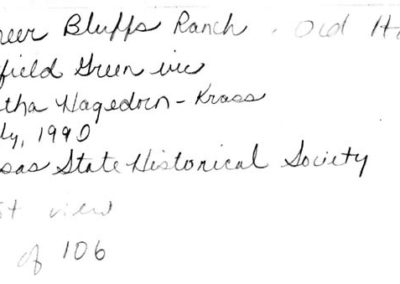 neer Bluffs Ranch . Old Ho
field Green vic
tha Hagedorn-Krass
ly, 1990
sas State Historical Society
st view
of 106